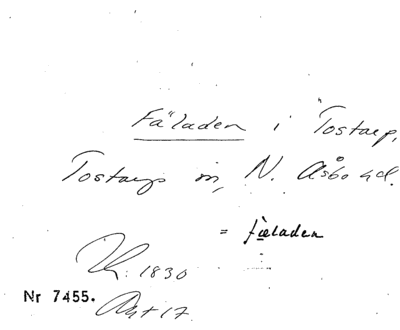 Fäladen i Tostarp,
Tostarps sn, N. Åsbo hd.
= fäladen
1830
Nr 7455. Akt 17